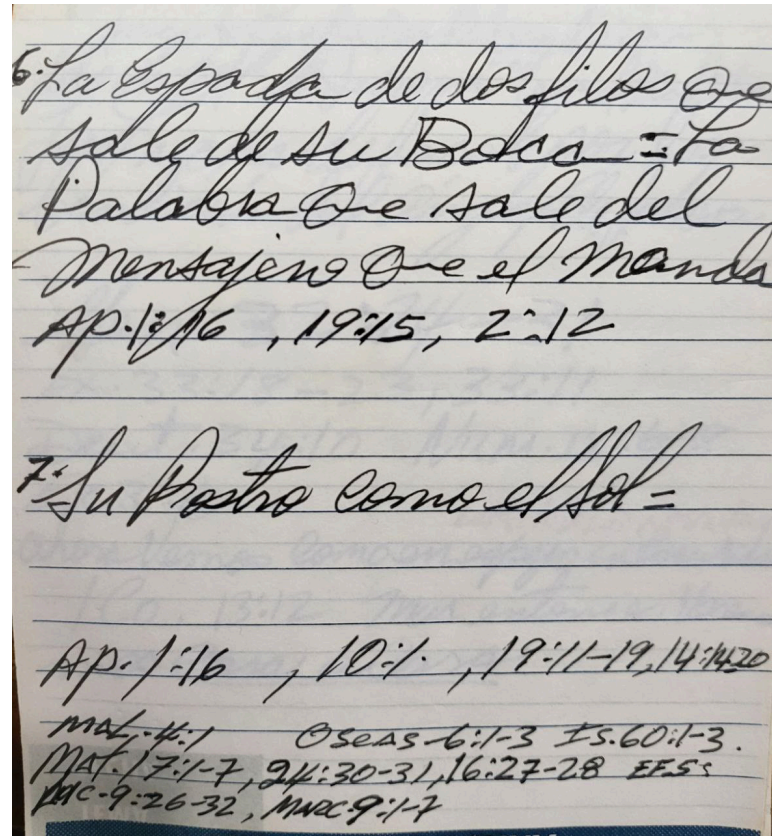 6. La Espada de dos filos Que
sale de su Boca = La
Palabra Que sale del
mensajero Que el manda
AP. 1:16 , 19:15, 2:12
7. Su Rostro como el Sol =
AP. 1:16 , 10:1. , 19:11-19, 14:14-20
MAL. 4:1 OSEAS-6:1-3 IS.60:1-3.
MAT. 17:1-7, 24:30-31, 16:27-28
LUC-9:26-32, MARC-9:1-7